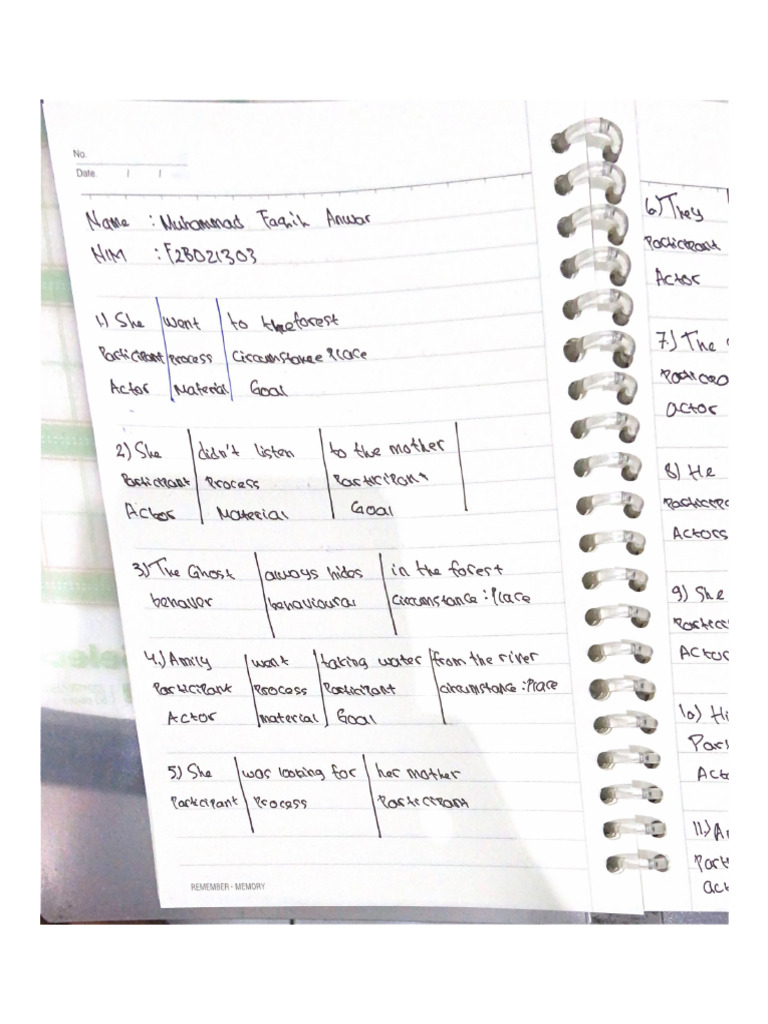 No.
Date. / /
Name : Muhammad Faqih Anwar
NIM : F2B021303
1.) She went to the forest
Participant Process Circumstance Place
Actor Material Goal
2) She didn't listen to the mother
Participant Process Participant
Actor Material Goal
3) The Ghost always hides in the forest
behaver behavioural circumstance : Place
4.) Amily went taking water from the river
Participant Process Participant circumstance : Place
Actor material Goal
5) She was looking for her mother
Participant Process Participant
REMEMBER - MEMORY
6) They
Participant
Actor
7.) The
actor
8) He
Actors
9) She
10) Hi
11.)